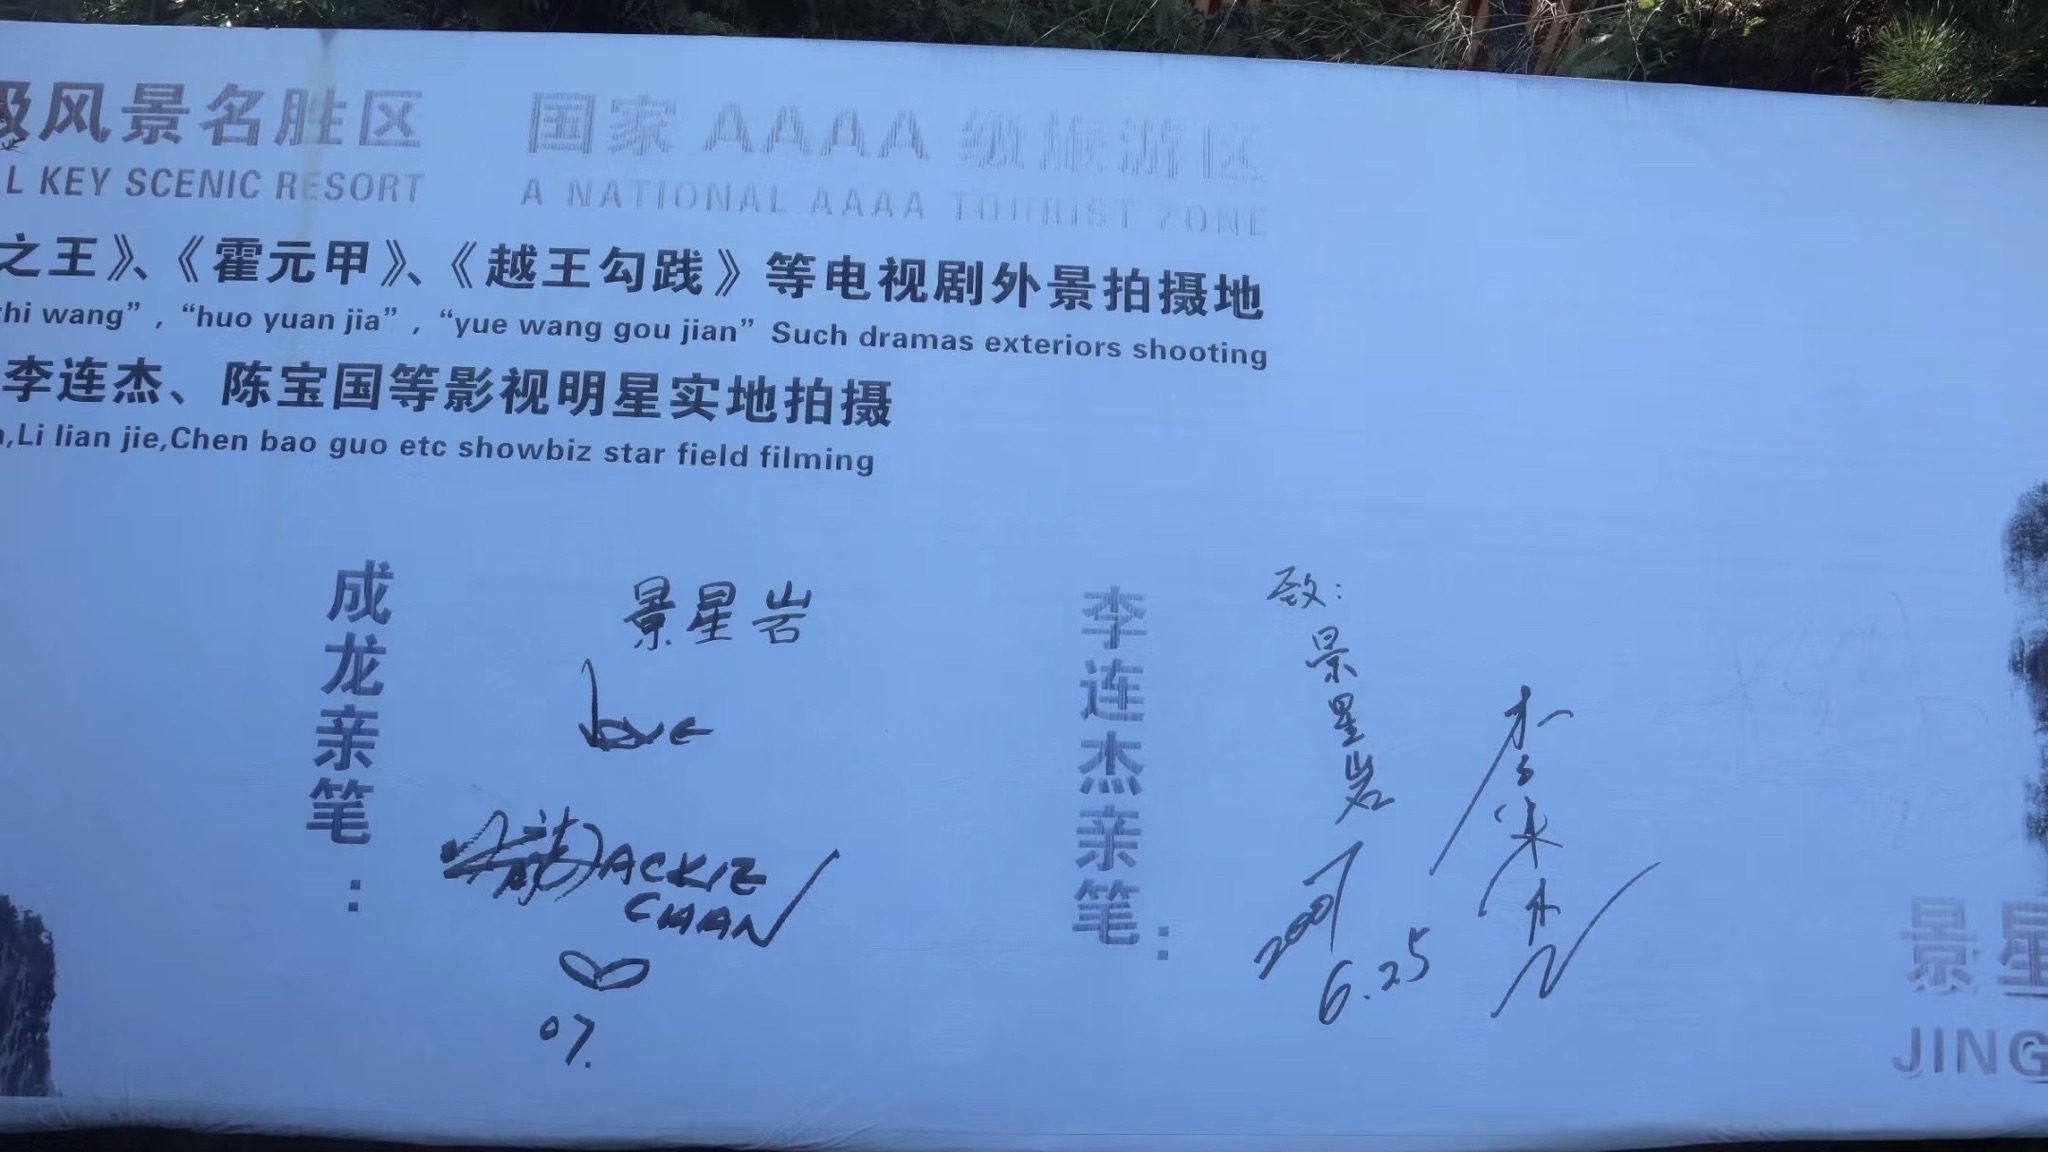 级风景名胜区
L KEY SCENIC RESORT
国家 AAAA 级旅游区
A NATIONAL AAAA TOURIST ZONE
之王》、《霍元甲》、《越王勾践》等电视剧外景拍摄地
hi wang”, “huo yuan jia”, “yue wang gou jian” Such dramas exteriors shooting
李连杰、陈宝国等影视明星实地拍摄
,Li lian jie,Chen bao guo etc showbiz star field filming
成龙亲笔：
景星岩
Love
JACKIE
CHAN
07.
李连杰亲笔：
致：
景星岩
2007
6.25
李连杰
景星
JING